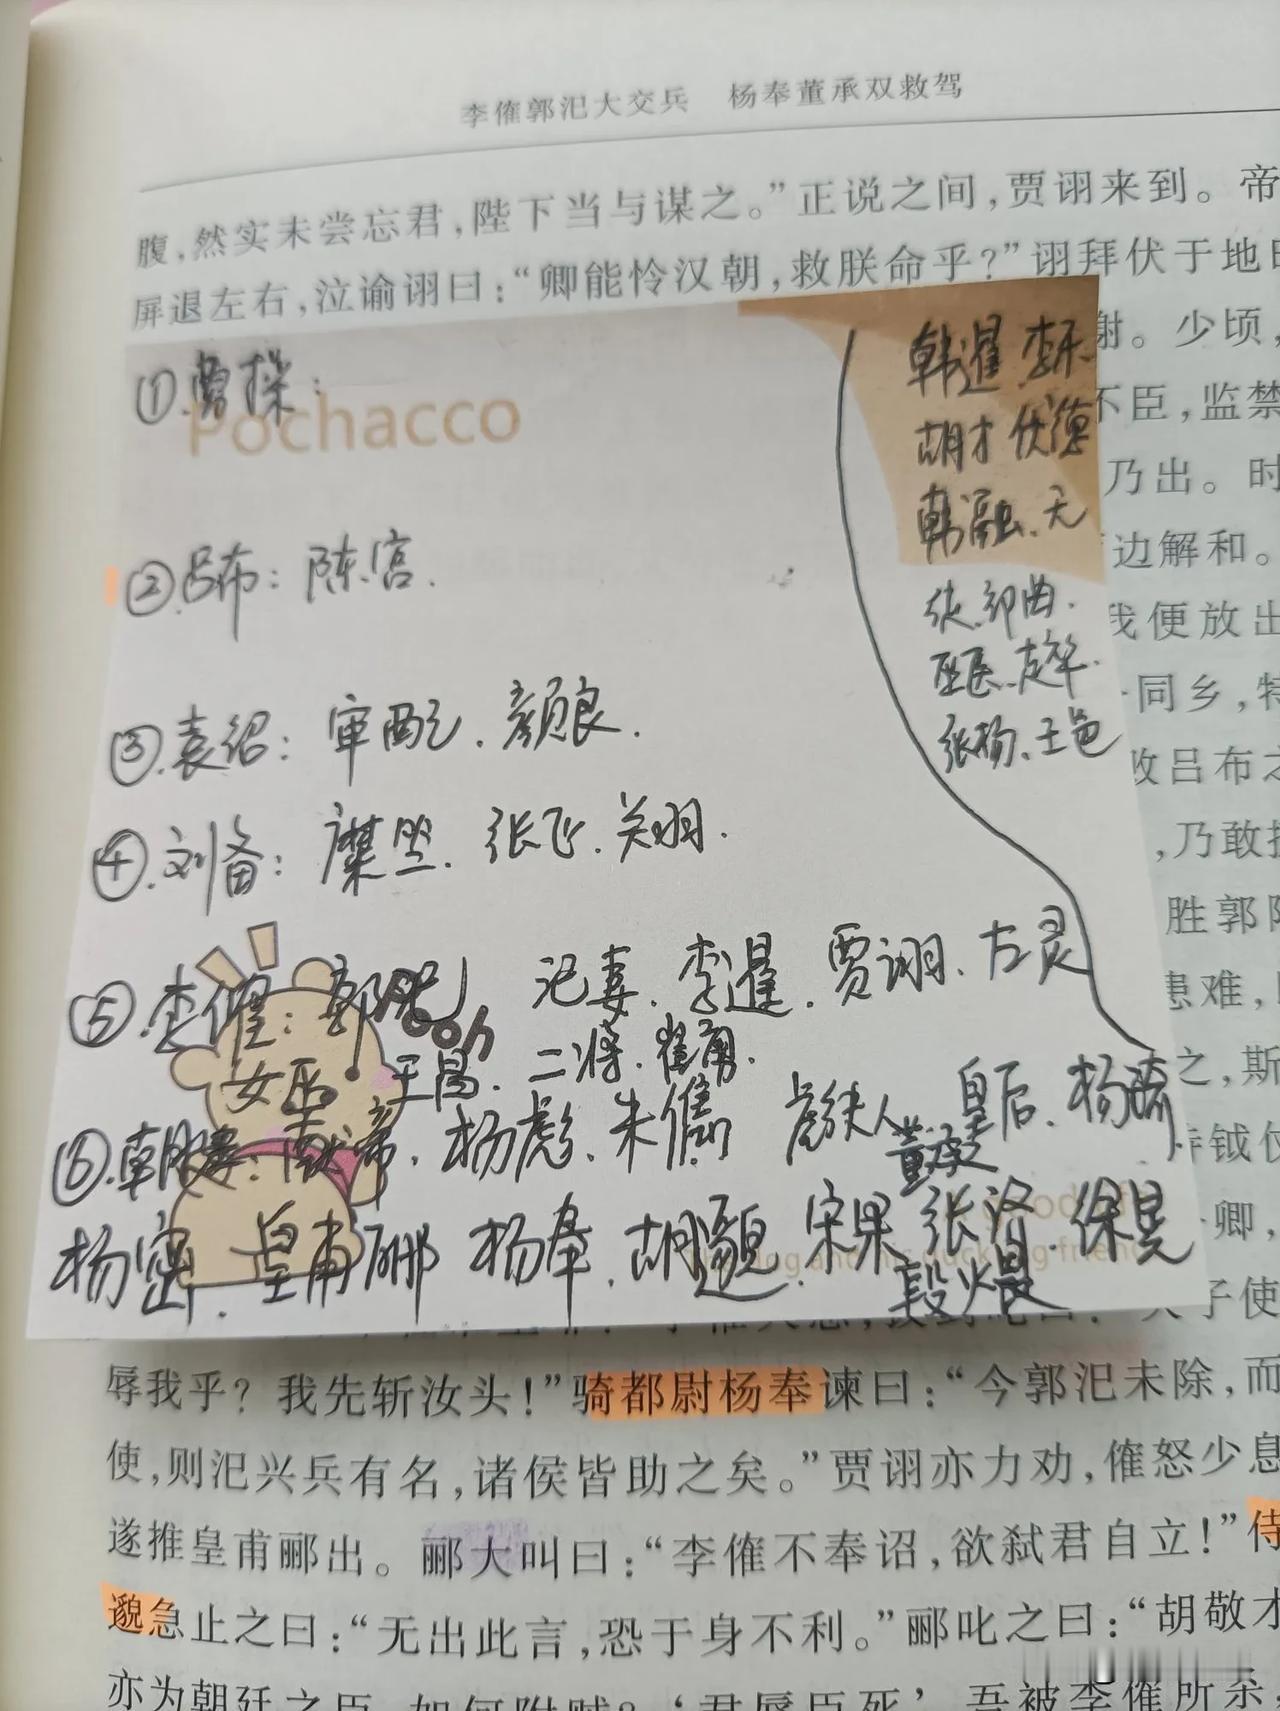 李傕郭汜大交兵 杨奉董承双救驾
腹,然实未尝忘君,陛下当与谋之。”正说之间,贾诩来到。帝
屏退左右,泣谕诩曰:“卿能怜汉朝,救朕命乎?”诩拜伏于地
谢。少顷,
不臣,监禁
乃出。时
边解和。
我便放出
同乡,特
败吕布之
,乃敢
胜郭
患难,
之,斯
钺仅
卿,
子使
①.曹操:
Pochacco
②.吕布: 陈宫.
③.袁绍: 审配. 颜良.
④.刘备: 糜竺. 张飞. 关羽.
⑤.李傕: 郭汜 汜妻. 李暹. 贾诩. 左灵
女巫 王昌. 二将. 崔勇.
⑥. 献帝. 杨彪. 朱儁 夫人 皇后. 杨琦
董承
杨密. 皇甫郦 杨奉. 胡邈. 宋果 张济. 徐晃
段煨
韩暹 李乐
胡才 伏德
韩融. 天
张. 部曲.
巫医. 走卒.
张杨. 王邑
辱我乎?我先斩汝头!”骑都尉杨奉谏曰:“今郭汜未除,而
使,则汜兴兵有名,诸侯皆助之矣。”贾诩亦力劝,傕怒少息
遂推皇甫郦出。郦大叫曰:“李傕不奉诏,欲弑君自立!”侍
邈急止之曰:“无出此言,恐于身不利。”郦叱之曰:“胡敬才
亦为朝廷之臣,如何附贼?‘君辱臣死’,吾被李傕所杀,